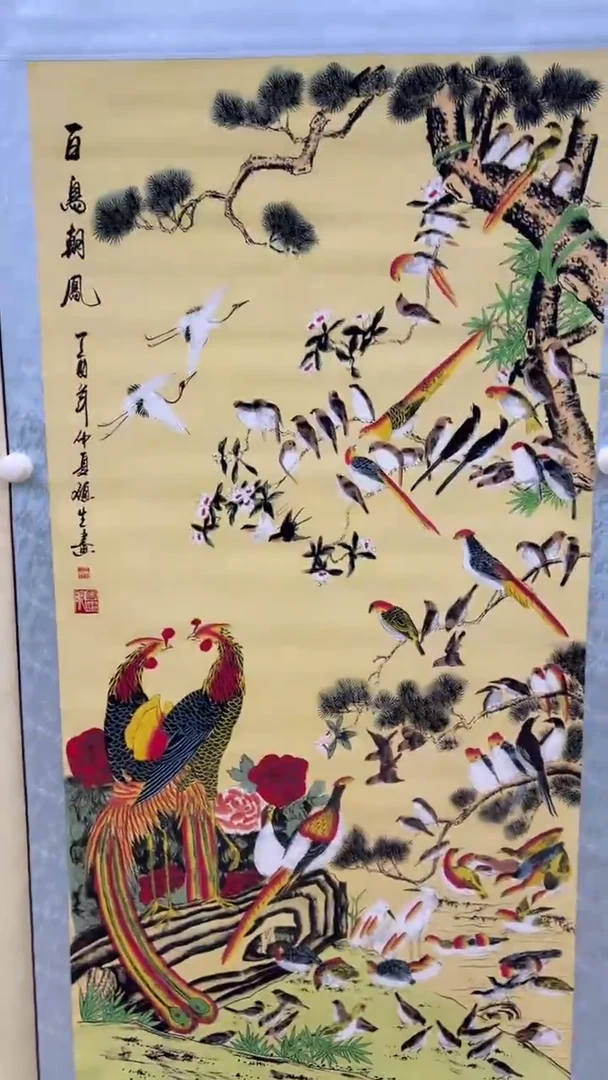 百鳥朝鳳
丁酉年仲夏 生畫